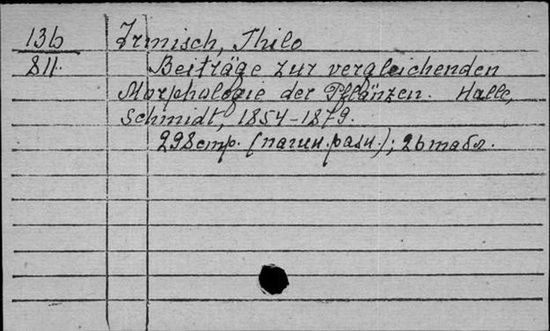 136
811.
Irmisch, Thilo
Beiträge zur vergleichenden
Morphologie der Pflänzen. Halle,
Schmidt, 1854-1879.
298 стр. (пагин. разн.); 26 табл.